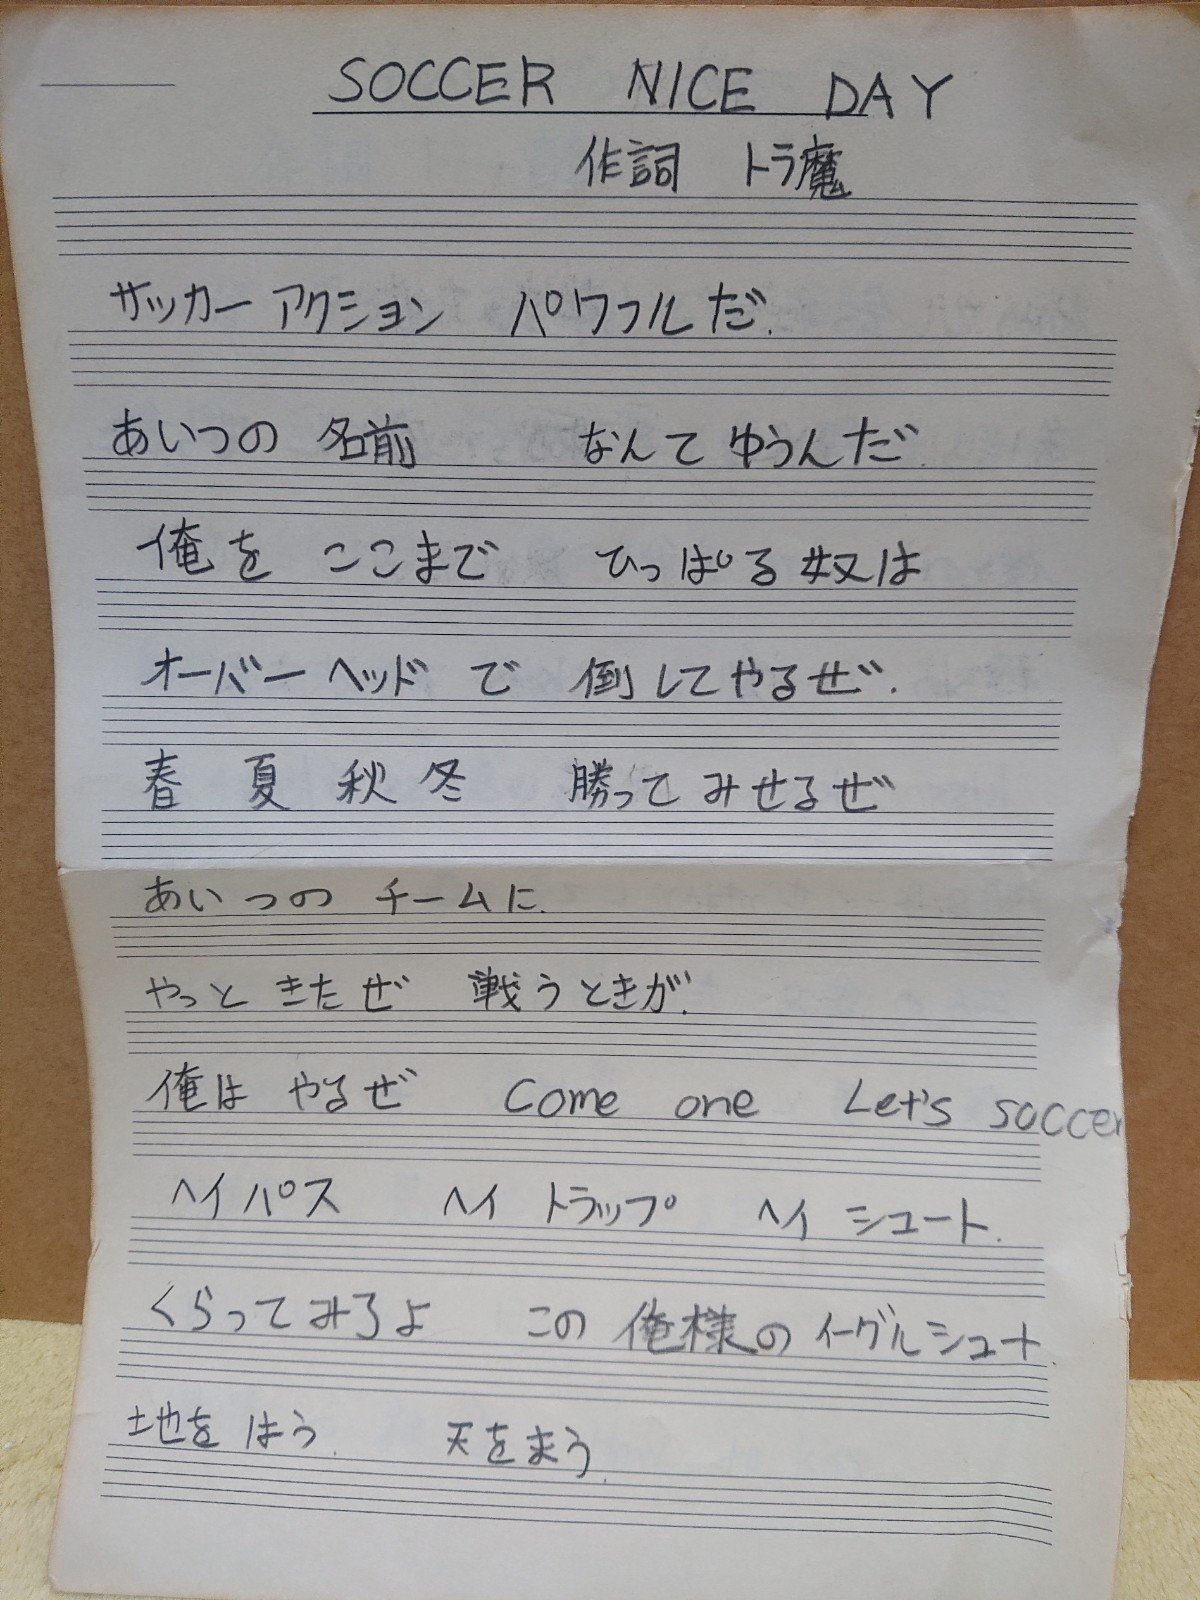 SOCCER NICE DAY
作詞 トラ魔
サッカー アクション パワフルだ.
あいつの 名前 なんて ゆうんだ.
俺を ここまで ひっぱる奴は
オーバー ヘッド で 倒してやるぜ.
春 夏 秋 冬 勝ってみせるぜ
あいつの チームに.
やっと きたぜ 戦うときが.
俺は やるぜ Come one Let's soccer
ヘイ パス ヘイ トラップ ヘイ シュート.
くらってみろよ この 俺様の イーグルシュート.
地を はう. 天をまう.